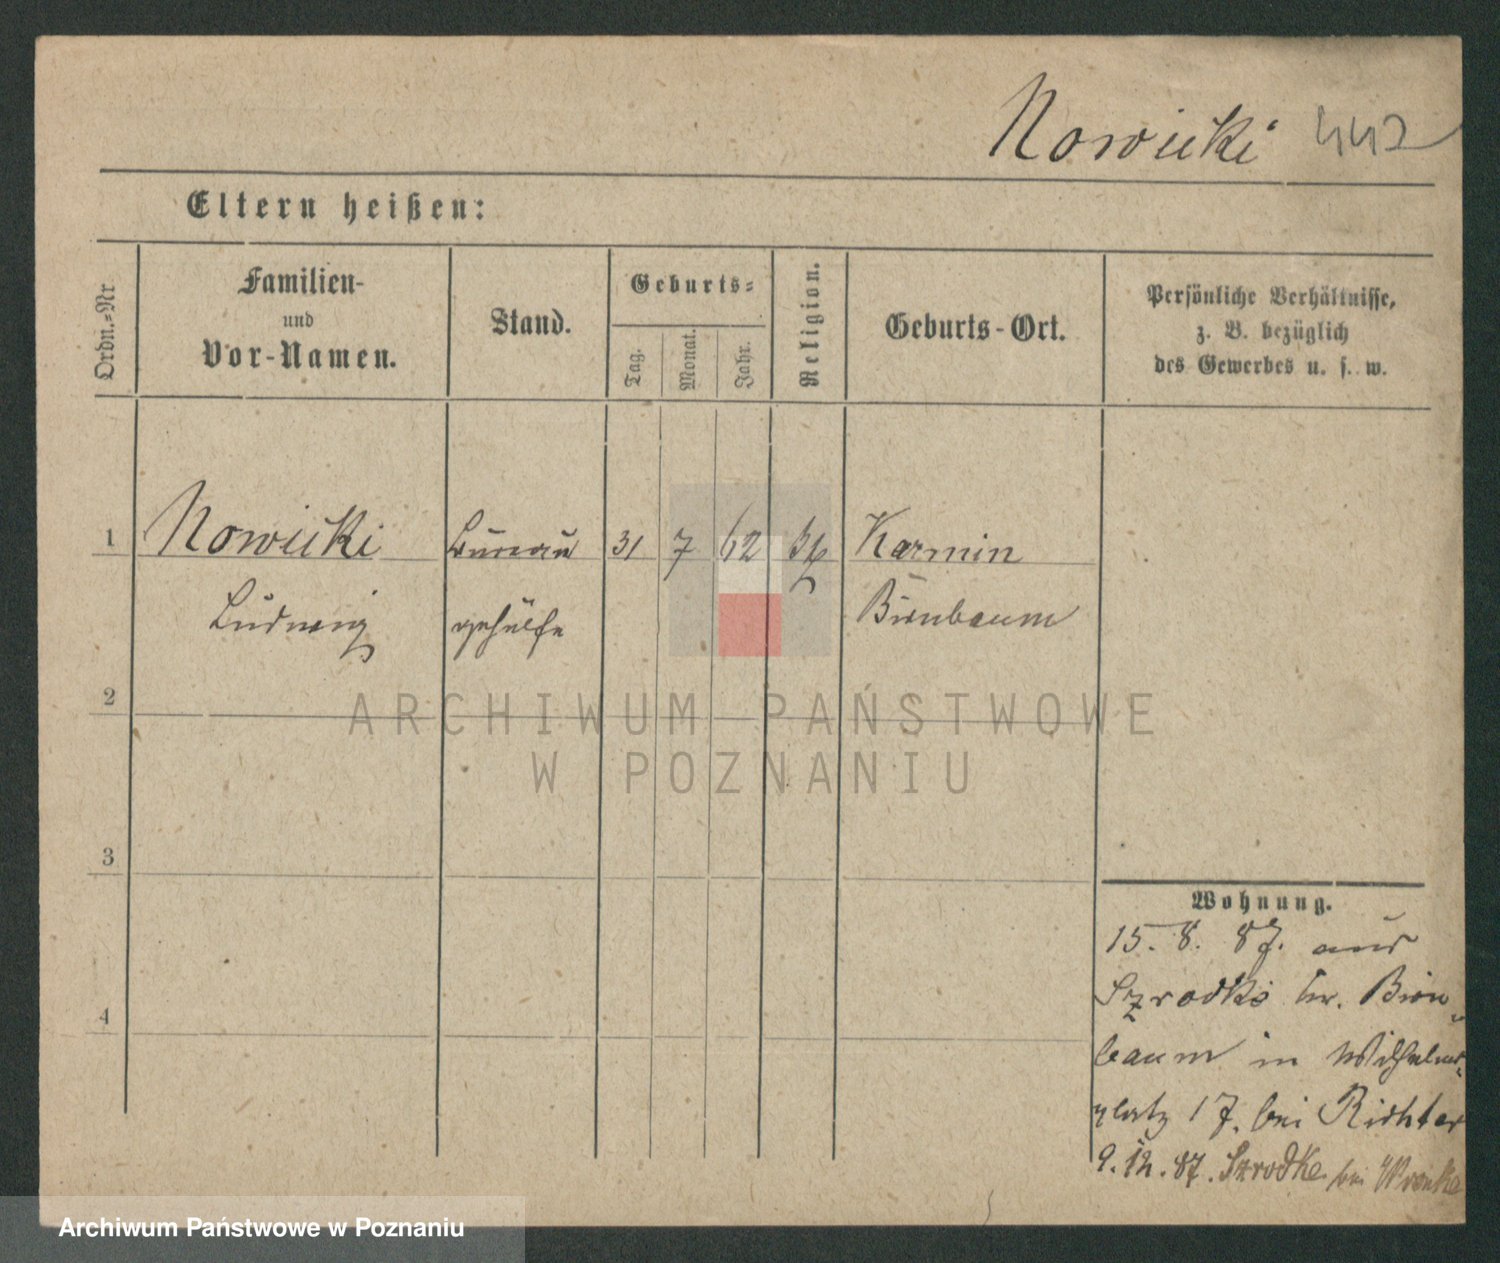 Nowicki 442
Eltern heißen:
Ordn.-Nr
Familien-
und
Vor-Namen.
Stand.
Geburts-
Tag.
Monat.
Jahr.
Religion.
Geburts-Ort.
Persönliche Verhältnisse,
z. B. bezüglich
des Gewerbes u. s. w.
1 Nowicki Bureau 31 7 62 Karmin
Ludwig gehülfe Birnbaum
2
ARCHIWUM PAŃSTWOWE
W POZNANIU
3
4
Wohnung.
15. 8. 87. aus
Szrodke Kr. Birn-
baum in Wilhelms-
platz 17. bei Richter
9. 12. 87. Szrodke bei Wronke
Archiwum Państwowe w Poznaniu